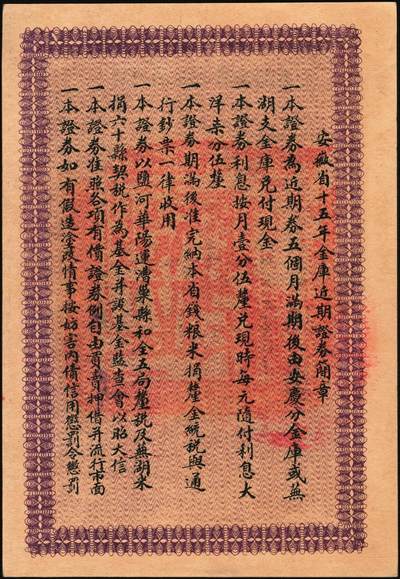 安徽省十五年金庫近期證券簡章
一本證券為近期券五個月滿期後由安慶分金庫或蕪
湖支金庫兌付現金
一本證券利息按月壹分伍釐兌現時每元隨付利息大
洋柒分伍釐
一本證券期滿後准完納本省錢粮米捐釐金統稅與通
行鈔票一律收用
一本證券以鹽河華陽運漕巢縣和全五局釐稅及蕪湖米
捐六十縣契稅作為基金并設基金監查會以昭大信
一本證券准照各項有價證券例自由買賣押借并流行市面
一本證券如有假造塗改情事按妨害內債信用懲罰令懲罰